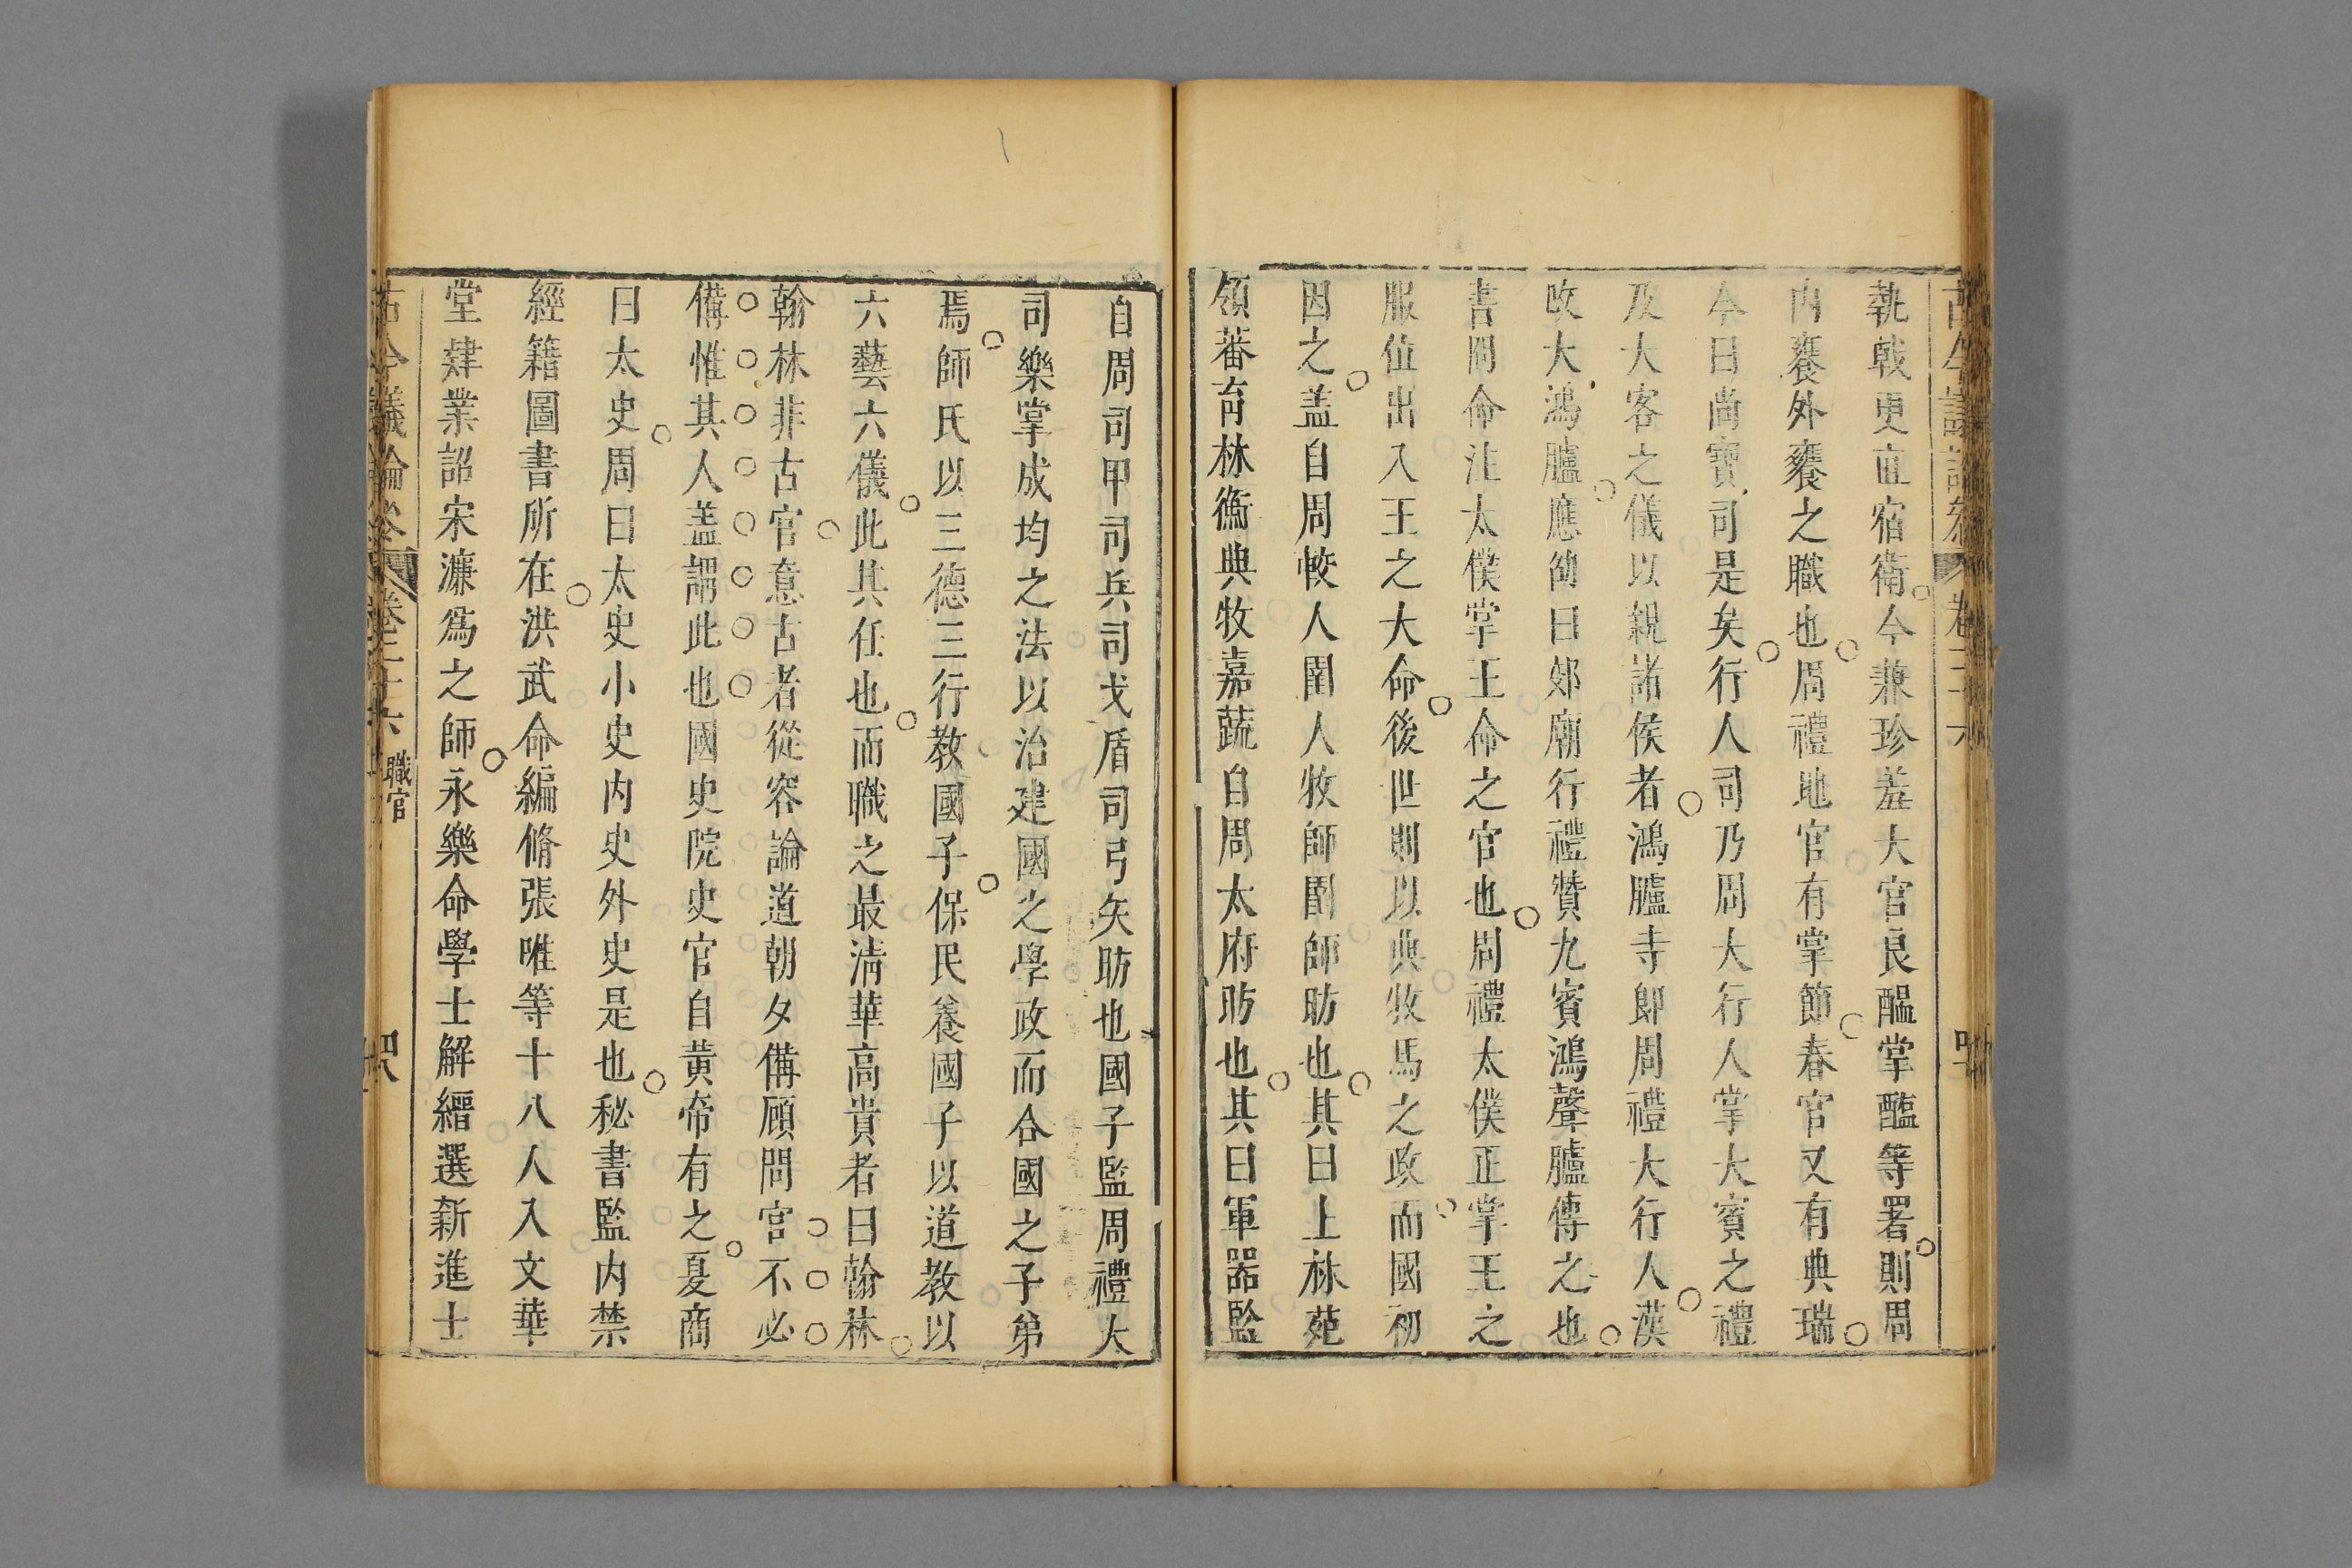 執戟更直宿衛今兼珍羞大官良醞掌醢等署則周
内饔外饔之職也周禮地官有掌節春官又有典瑞
今日尚寶司是矣行人司乃周大行人掌大賓之禮
及大客之儀以親諸侯者鴻臚寺郎周禮大行人漢
改大鴻臚應劭曰郊廟行禮贊九賓鴻聲臚傳之也
書冏命注太僕掌王命之官也周禮太僕正掌王之
服位出入王之大命後世則以典牧馬之政而國初
因之盖自周較人圉人牧師圉師昉也其曰上林苑
領蕃育林衡典牧嘉蔬自周太府昉也其曰軍器監
自周司甲司兵司戈盾司弓矢昉也國子監周禮大
司樂掌成均之法以治建國之學政而合國之子弟
焉師氏以三德三行教國子保民養國子以道教以
六藝六儀此其任也而職之最清華高貴者曰翰林
翰林非古官意古者從容論道朝夕備顧問官不必
備惟其人盖謂此也國史院史官自黃帝有之夏商
曰太史周曰太史小史内史外史是也秘書監内禁
經籍圖書所在洪武命編脩張唯等十八人入文華
堂肄業詔宋濂爲之師永樂命學士解縉選新進士
古今議論叅 卷三十六 職官